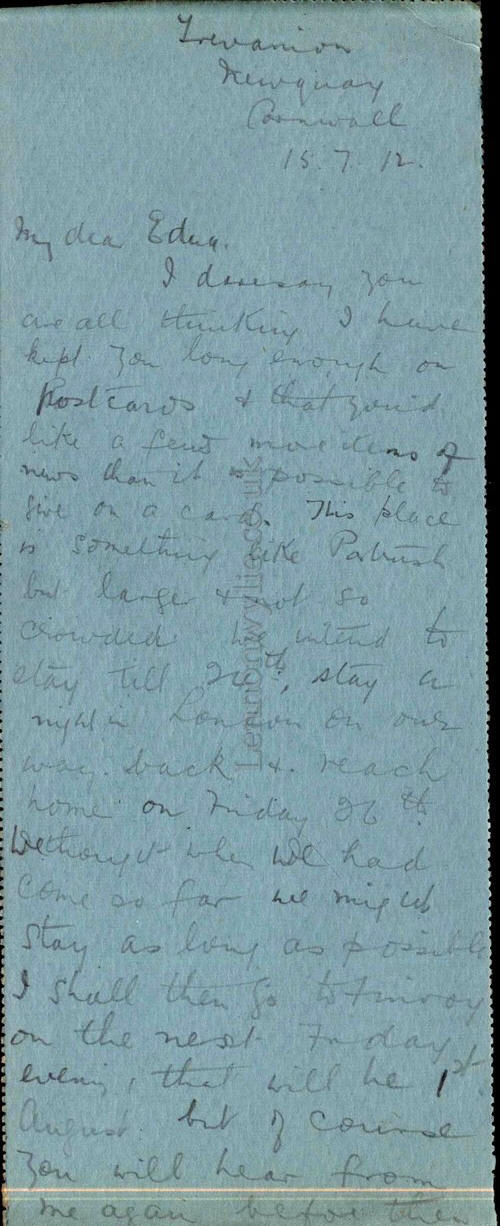 Trevanion
Newquay
Cornwall
15.7.12.
My dear Edna.
I daresay you
are all thinking I have
kept you long enough on
Postcards & that you'd
like a few more items of
news than it is possible to
give on a card. This place
is something like Portrush
but larger & not so
crowded We intend to
stay till th, stay a
night in London on our
way back & reach
home on Friday 26th.
We thought when we had
come so far we might
stay as long as possible
I shall then go to
on the next Friday
evening, that will be 1st
August. but of course
you will hear from
me again before then
Lennonwylie.co.uk